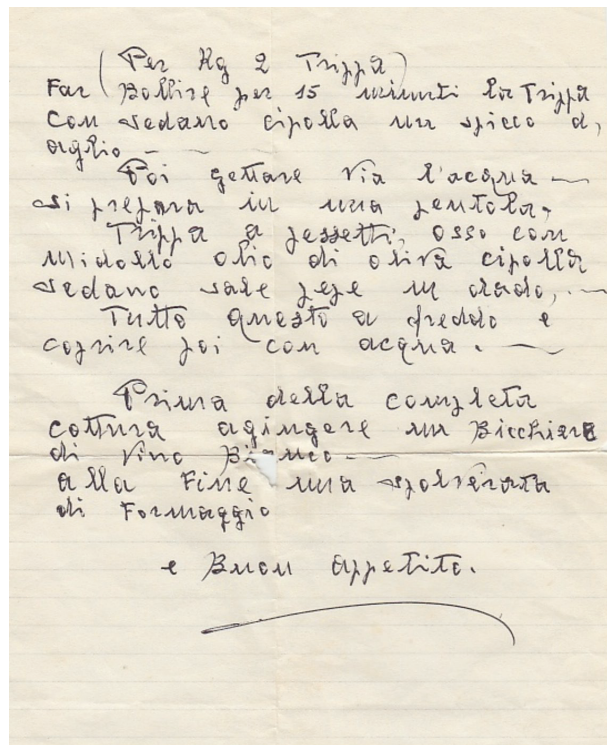 (Per Kg 2 Trippa)
Far Bollire per 15 minuti la Trippa
con sedano cipolla un spicco d,
aglio —
Poi gettare via l'acqua —
si prepara in una pentola,
Trippa a pezzetti, osso con
midollo olio di oliva cipolla
sedano sale pepe un dado, —
Tutto questo a freddo e
coprire poi con acqua. —
Prima della completa
cottura agingere un Bicchiere
di vino Bianco —
alla Fine una spolverata
di Formaggio
e Buon appetito.